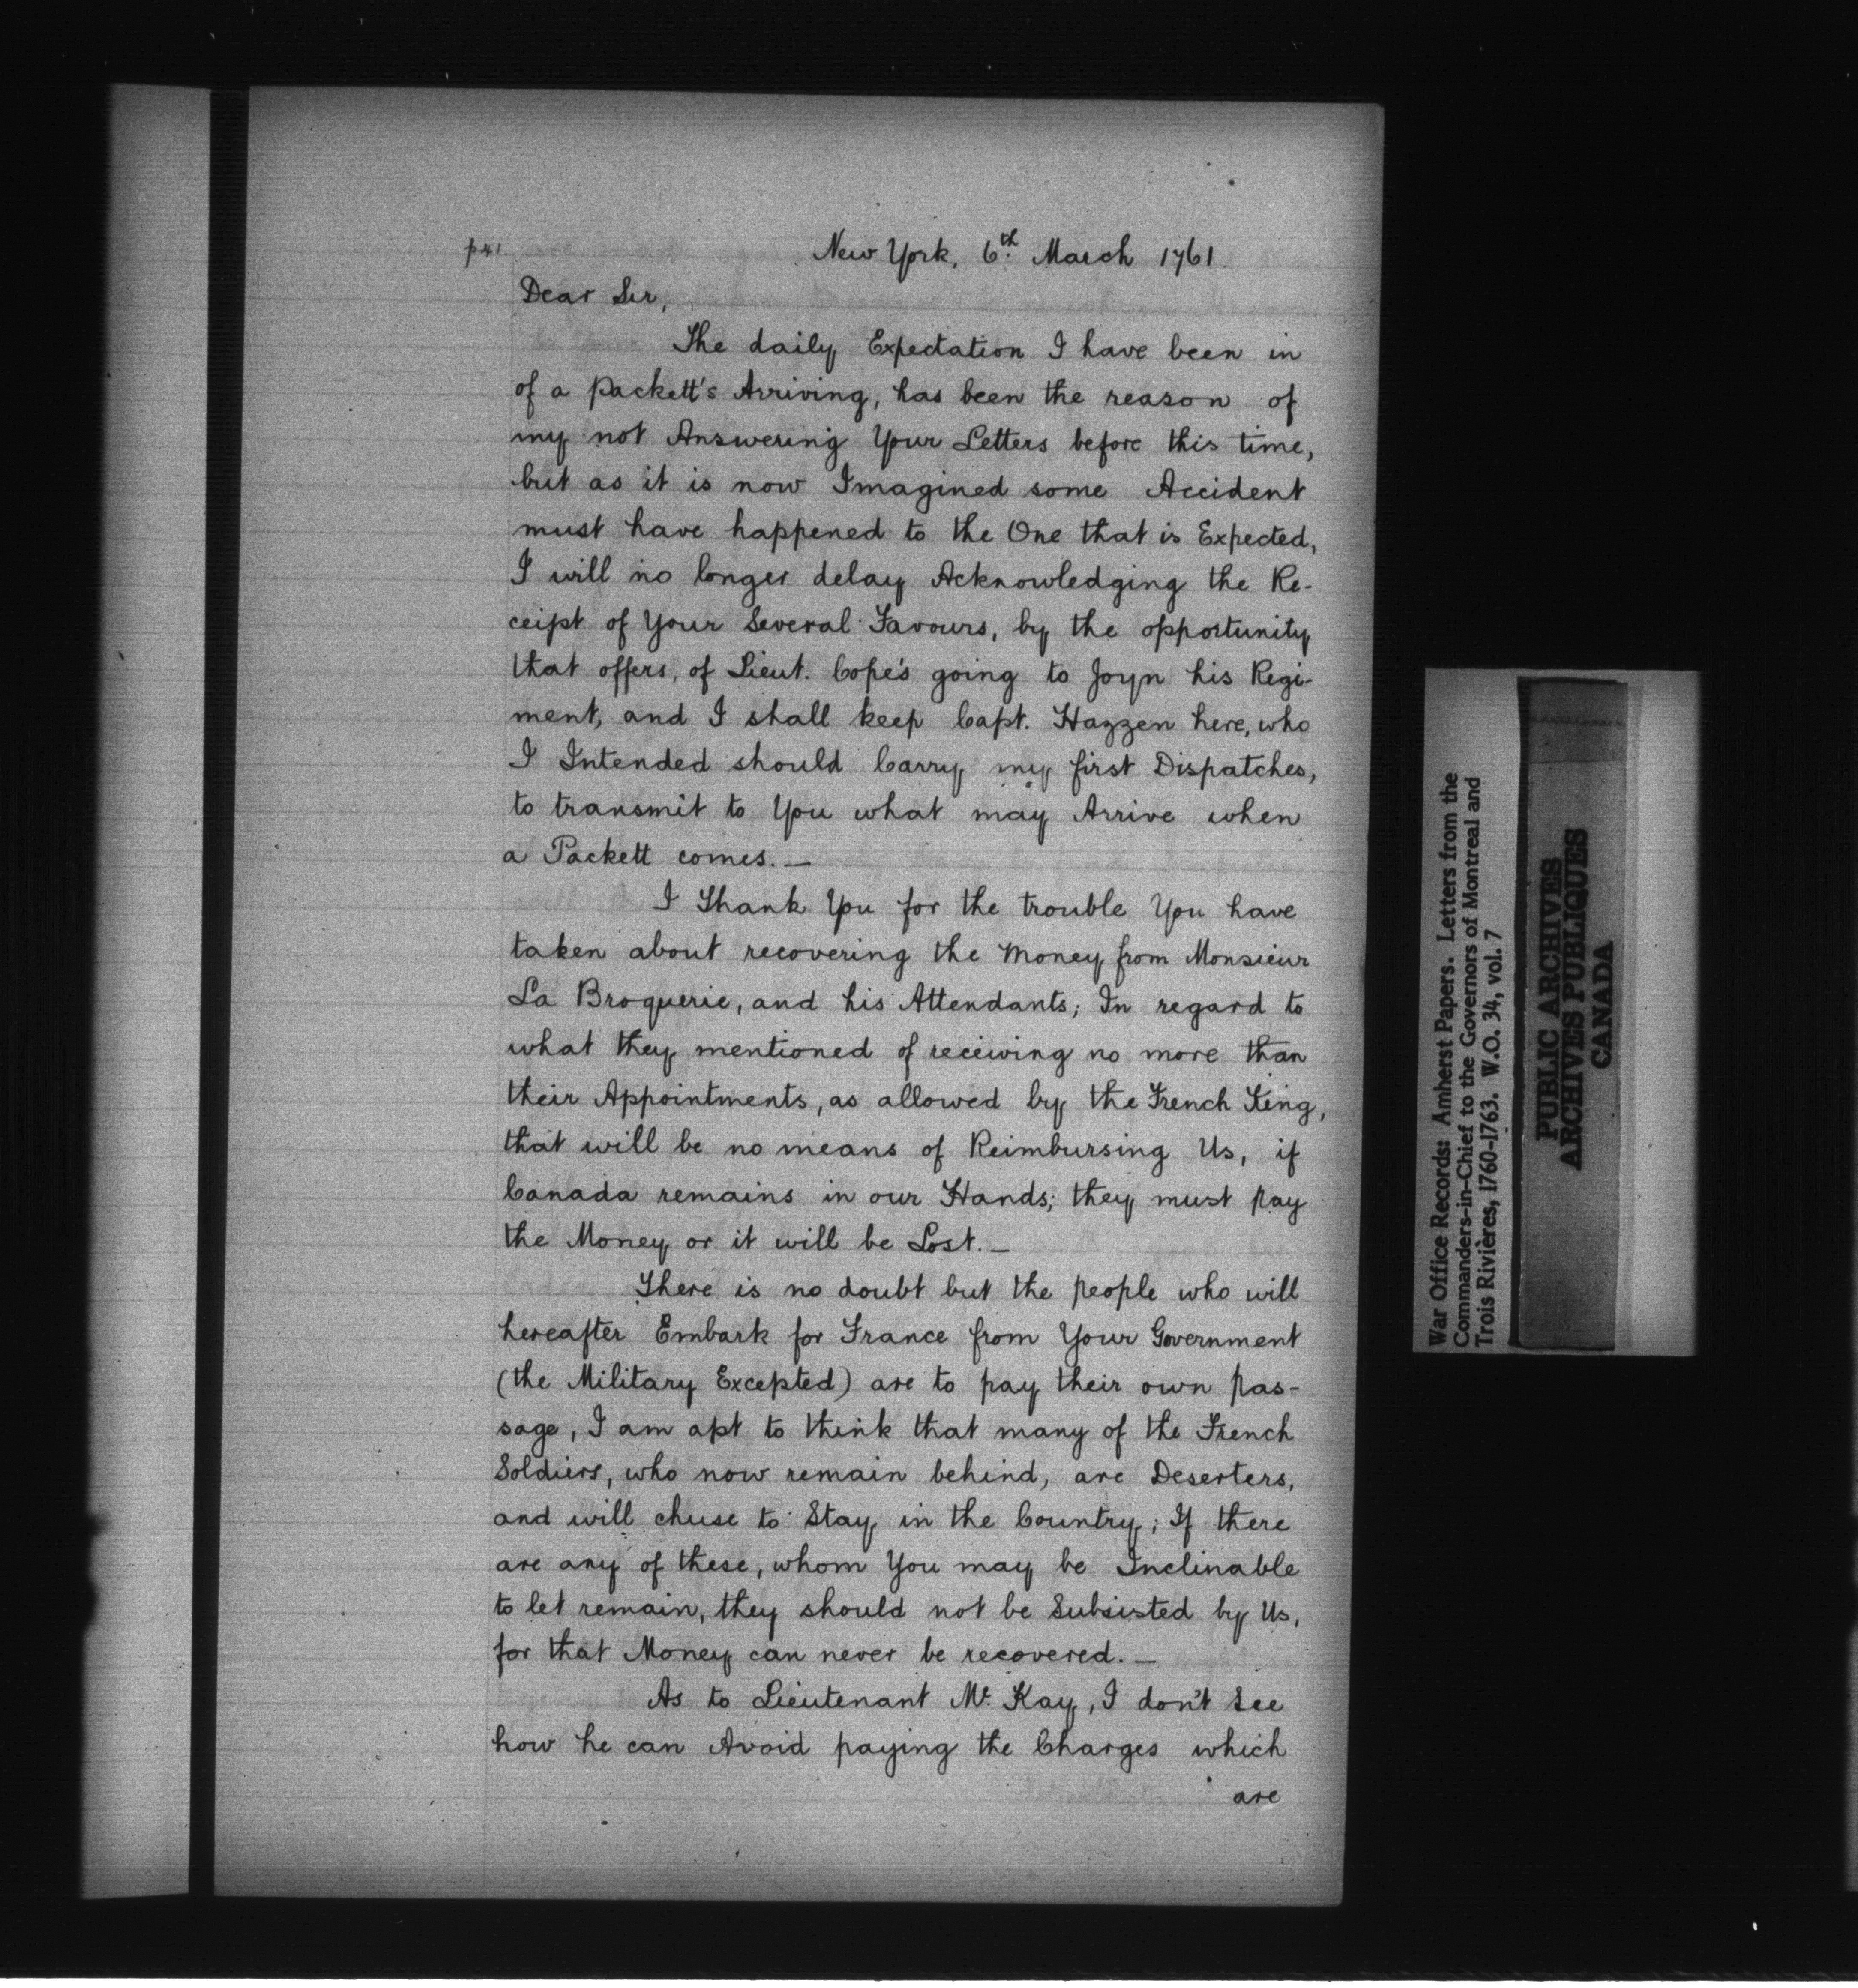 p41.
New York, 6th March 1761.
Dear Sir,
The daily Expectation I have been in
of a packett's Arriving, has been the reason of
my not Answering Your Letters before this time,
but as it is now Imagined some Accident
must have happened to the One that is Expected,
I will no longer delay Acknowledging the Re-
ceipt of Your Several Favours, by the opportunity
that offers, of Lieut. Cope's going to Joyn his Regi-
ment, and I shall keep Capt. Hazzen here, who
I Intended should Carry my first Dispatches,
to transmit to You what may Arrive when
a Packett comes.—
I Thank You for the trouble You have
taken about recovering the Money from Monsieur
La Broquerie, and his Attendants; In regard to
what they mentioned of receiving no more than
their Appointments, as allowed by the French King,
that will be no means of Reimbursing Us, if
Canada remains in our Hands; they must pay
the Money or it will be Lost.—
There is no doubt but the people who will
hereafter Embark for France from Your Government
(the Military Excepted) are to pay their own pas-
sage, I am apt to think that many of the French
Soldiers, who now remain behind, are Deserters,
and will chuse to Stay in the Country; If there
are any of these, whom You may be Inclinable
to let remain, they should not be Subsisted by Us,
for that Money can never be recovered.—
As to Lieutenant Mc. Kay, I don't See
how he can Avoid paying the Charges which
are
War Office Records: Amherst Papers. Letters from the
Commanders-in-Chief to the Governors of Montreal and
Trois Rivières, 1760-1763. W.O. 34, vol. 7
PUBLIC ARCHIVES
ARCHIVES PUBLIQUES
CANADA